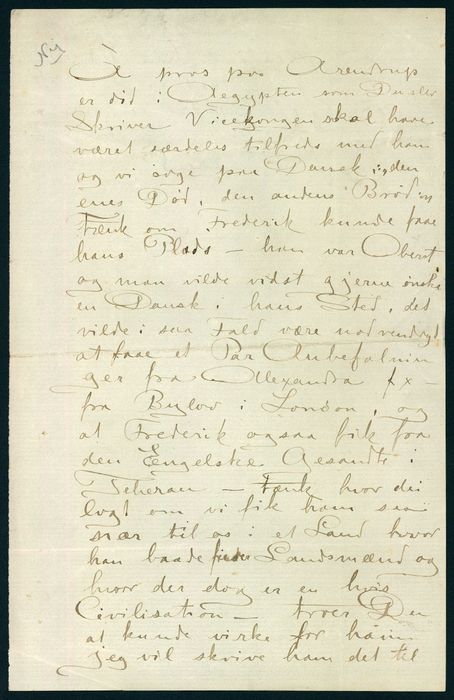 Ny
À pros pos Arendrup
er död i Ægypten som Du selv
Skriver Vicekongen skal have
været særdeles tilfreds med ham
og vi sige paa Dansk "den
enes Död, den andens Bröd"
Tænk om Frederik kunde faae
hans Plads – han var Oberst
og man vilde vidst gjerne önske
en Dansk i hans Sted, det
vilde i saa Fald være nödvendigt
at faae et Par Anbefalnin
ger fra Alexandra fx –
fra Bylow i London, og
at Frederik ogsaa fik fra
den Engelske Gesandt i
Teheran – Tænk hvor dei
ligt om vi fik ham saa
nær til os i et Land hvor
han baade finder Landsmænd og
hvor der dog er en hvis
Civilisation – troer Du
at kunde virke for ham
jeg vil skrive ham det til